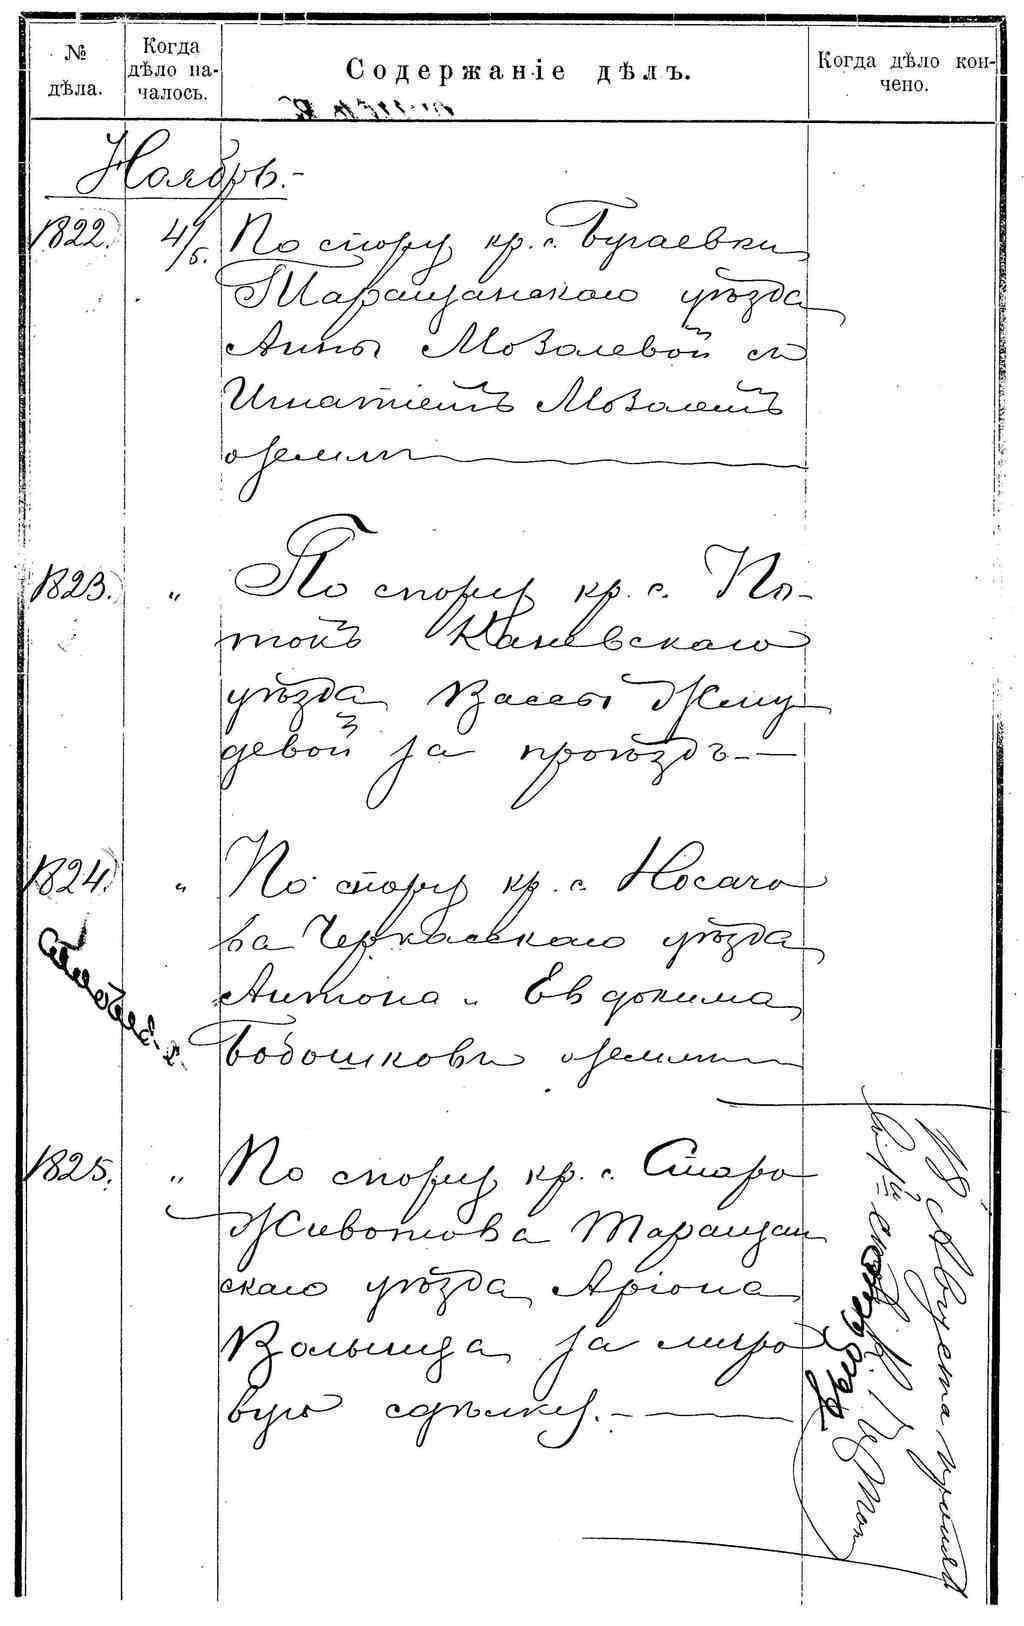 № дѣла.
Когда дѣло на-
чалось.
Содержаніе дѣлъ.
Когда дѣло кон-
чено.
Ноябрь.-
1822. 4/5. По спору кр. с. Бугаевки
Таращанскаго уѣзда
Анны Мозолевой съ
Игнатіемъ Мозолемъ
о землѣ
1823. " По спору кр. с. По-
токъ Каневскаго
уѣзда Вассы Жму
девой за проѣздъ.-
1824. " По спору кр. с. Носачо
ва Черкасскаго уѣзда
Антона и Евдокима
Бобошковъ о землѣ
1825. " По спору кр. с. Старо
Животова Таращан
скаго уѣзда Аріона
Волынца за миро
вую сдѣлку.-
18 Августа